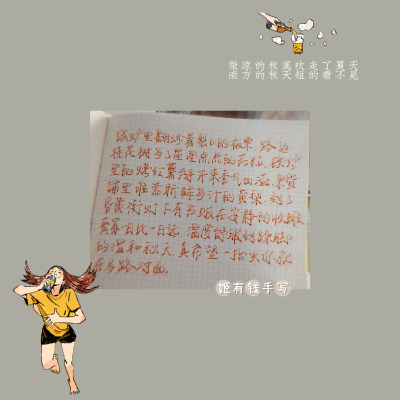 微凉的秋风吹走了夏天
南方的秋天短的看不见
锅炉里翻炒着裂口的板栗,路边
桂花树多了星星点点的花粒,铁炉
里的烤红薯掰开来香气四溢,果货
铺里堆着新鲜多汁的黄梨,到了
昏黄街灯下有书贩在安静的收摊
黄昏去比一日远,温度
的温和秋天,真希望一抬头你就
在马路对面。
姬有钱手写